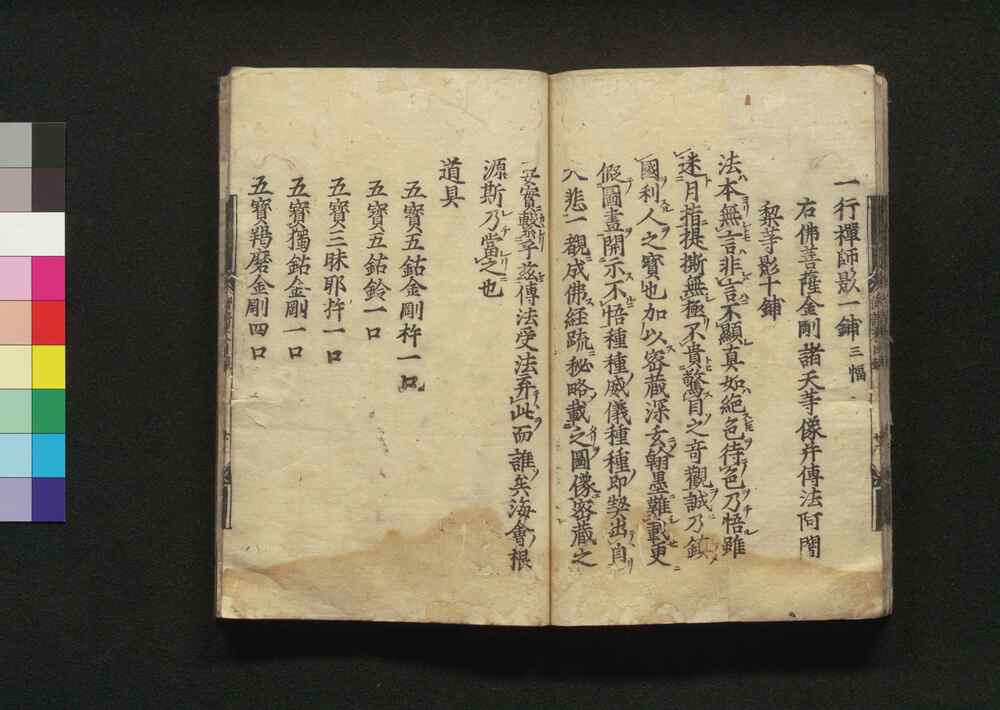 一行禪師影一鋪三幅
右佛菩薩金剛諸天等像并傳法阿闍
梨等影十鋪
法本無言非言不顯真如絶色待色乃悟雖
迷月指提撕無極不貴驚目之奇觀誠乃鎮
國利人之寳也加以密藏深玄翰墨難載更
假圖畫開示不悟種種威儀種種印契出自
大悲一覩成佛経疏秘略載之圖像密藏之
要實繋乎兹傳法受法弃此而誰矣海會根
源斯乃當之也
道具
五寶五鈷金剛杵一口
五寶五鈷鈴一口
五寶三昧耶杵一口
五寶獨鈷金剛一口
五寶羯磨金剛四口